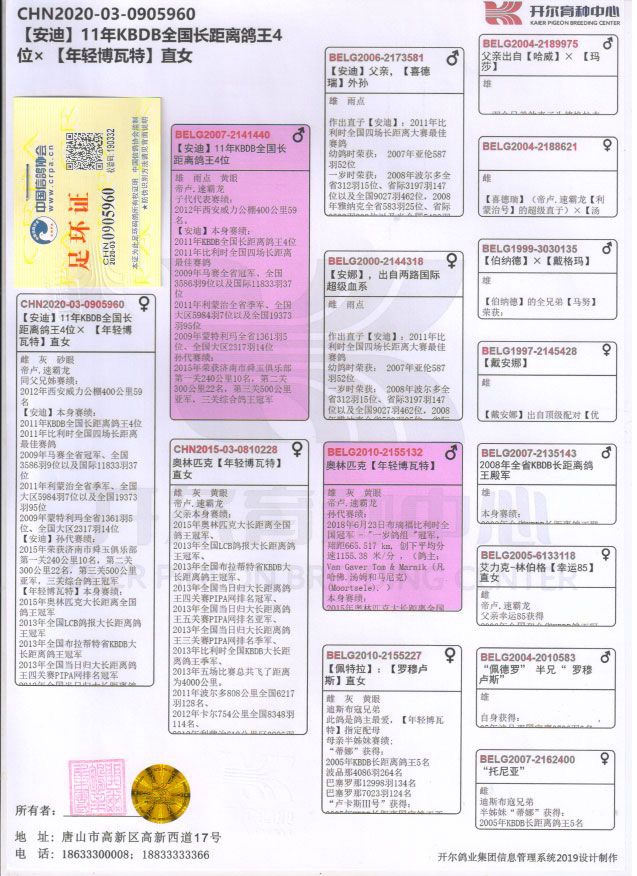 CHN2020-03-0905960
【安迪】11年KBDB全国长距离鸽王4
位×【年轻博瓦特】直女
开尔育种中心
KAIER PIGEON BREEDING CENTER
中国信鸽协会
www.crpa.cn
足环证
CHN 2020-03 0905960
CHN2020-03-0905960 ♀
【安迪】11年KBDB全国长
距离鸽王4位×【年轻博
瓦特】直女
雌 灰 砂眼
帝卢.速霸龙
同父兄姊赛绩:
2012年西安威力公棚400公里59
名
【安迪】本身赛绩:
2011年KBDB全国长距离鸽王4位
2011年比利时全国四场长距离
最佳赛鸽
2009年马赛全省冠军、全国
3586羽9位以及国际11833羽37
位
2011年利蒙治全省季军、全国
大区5984羽7位以及全国19373
羽95位
2009年蒙特利玛全省1361羽5
位、全国大区2317羽14位
【安迪】孙代赛绩:
2015年荣获济南市舜玉俱乐部
第一关240公里10名，第二关
300公里22名，第三关500公里
亚军，三关综合鸽王冠军
【年轻博瓦特】本身赛绩:
2015年奥林匹克大长距离全国
鸽王冠军
2013年全国LCB鸽报大长距离
鸽王冠军
2013年全国布拉蒂特省KBDB大
长距离鸽王冠军
2013年全国当日归大长距离鸽
王四关赛PIPA网排名冠军
BELG2007-2141440 ♂
【安迪】11年KBDB全国长
距离鸽王4位
雄 雨点 黄眼
帝卢.速霸龙
子代代表赛绩:
2012年西安威力公棚400公里59
名
【安迪】本身赛绩:
2011年KBDB全国长距离鸽王4位
2011年比利时全国四场长距离
最佳赛鸽
2009年马赛全省冠军、全国
3586羽9位以及国际11833羽37
位
2011年利蒙治全省季军、全国
大区5984羽7位以及全国19373
羽95位
2009年蒙特利玛全省1361羽5
位、全国大区2317羽14位
孙代赛绩:
2015年荣获济南市舜玉俱乐部
第一关240公里10名，第二关
300公里22名，第三关500公里
亚军，三关综合鸽王冠军
CHN2015-03-0810228 ♀
奥林匹克【年轻博瓦特】
直女
雌 灰 黄眼
帝卢.速霸龙
父亲本身赛绩:
2015年奥林匹克大长距离全国
鸽王冠军、
2013年全国LCB鸽报大长距离
鸽王冠军、
2013年全国布拉蒂特省KBDB大
长距离鸽王冠军、
2013年全国当日归大长距离鸽
王四关赛PIPA网排名冠军、
2013年全国当日归大长距离鸽
王五关赛PIPA网排名亚军、
2013年全国当日归大长距离鸽
王三关赛PIPA网排名季军、
2013年比利时全国KBDB大长距
离鸽王季军、
2013年五场比赛总共飞了距离
为4000公里。
2011年波尔多808公里全国6217
羽128名、
2012年卡尔754公里全国8348羽
114名、
BELG2006-2173581 ♂
【安迪】父亲，【喜德
瑞】外孙
雄 雨点
作出直子【安迪】: 2011年比
利时全国四场长距离大赛最佳
赛鸽
幼鸽时荣获: 2007年亚伦587
羽52位
一岁时荣获: 2008年波尔多全
省312羽15位、省际3197羽147
位以及全国9027羽462位。2008
年雅纳克全省583羽25位、省际
BELG2000-2144318 ♀
【安娜】，出自两路国际
超级血系
雌 雨点
作出直子【安迪】: 2011年比
利时全国四场长距离大赛最佳
赛鸽
幼鸽时荣获: 2007年亚伦587
羽52位
一岁时荣获: 2008年波尔多全
省312羽15位、省际3197羽147
位以及全国9027羽462位。2008
BELG2010-2155132 ♂
奥林匹克【年轻博瓦特】
雄 灰 黄眼
帝卢.速霸龙
孙代赛绩:
2018年6月23日布瑞福比利时全
国冠军 - "一岁鸽组"冠军，
翔距665.517 km, 创下平均分
速1155.38 米/分，(鸽主:
Van Gaver Tom & Marnik (凡
哈佛.汤姆和马尼克)
(Moortsele).)
本身赛绩:
2015年奥林匹克大长距离全国
BELG2010-2155227 ♀
【佩特拉】: 【罗穆卢
斯】直女
雌 灰 黄眼
迪斯布寇兄弟
此鸽是鸽主最爱，【年轻博瓦
特】指定配母
母亲半姊妹赛绩:
"蒂娜"获得:
2005年KBDB长距离鸽王5名
波品那4086羽264名
巴塞罗那12998羽134名
巴塞罗那7023羽124名
"卢卡斯III号"获得:
BELG2004-2189975 ♂
父亲出自【哈威】×【玛
莎】
雄
BELG2004-2188621 ♀
雌
【喜德瑞】(帝卢.速霸龙【利
蒙治号】的超级直子)×【汤
BELG1999-3030135 ♂
【伯纳德】×【戴格玛】
雄
【伯纳德】的全兄弟【马努】
荣获:
BELG1997-2145428 ♀
【戴安娜】
雌
【戴安娜】出自顶级配对【优
BELG2007-2135143 ♂
2008年全省KBDB长距离鸽
王殿军
雄
本身赛绩:
BELG2005-6133118 ♀
艾力克-林伯格【幸运85】
直女
雌
帝卢.速霸龙
父亲幸运85获得
BELG2004-2010583 ♂
"佩德罗" 半兄 " 罗穆
卢斯"
雄
自身获得:
BELG2007-2162400 ♀
"托尼亚"
雌
迪斯布寇兄弟
半姊妹"蒂娜"获得:
2005年KBDB长距离鸽王5名
所有者:
地 址: 唐山市高新区高新西道17号
电 话: 18633300008; 18833333366
开尔鸽业集团信息管理系统2019设计制作